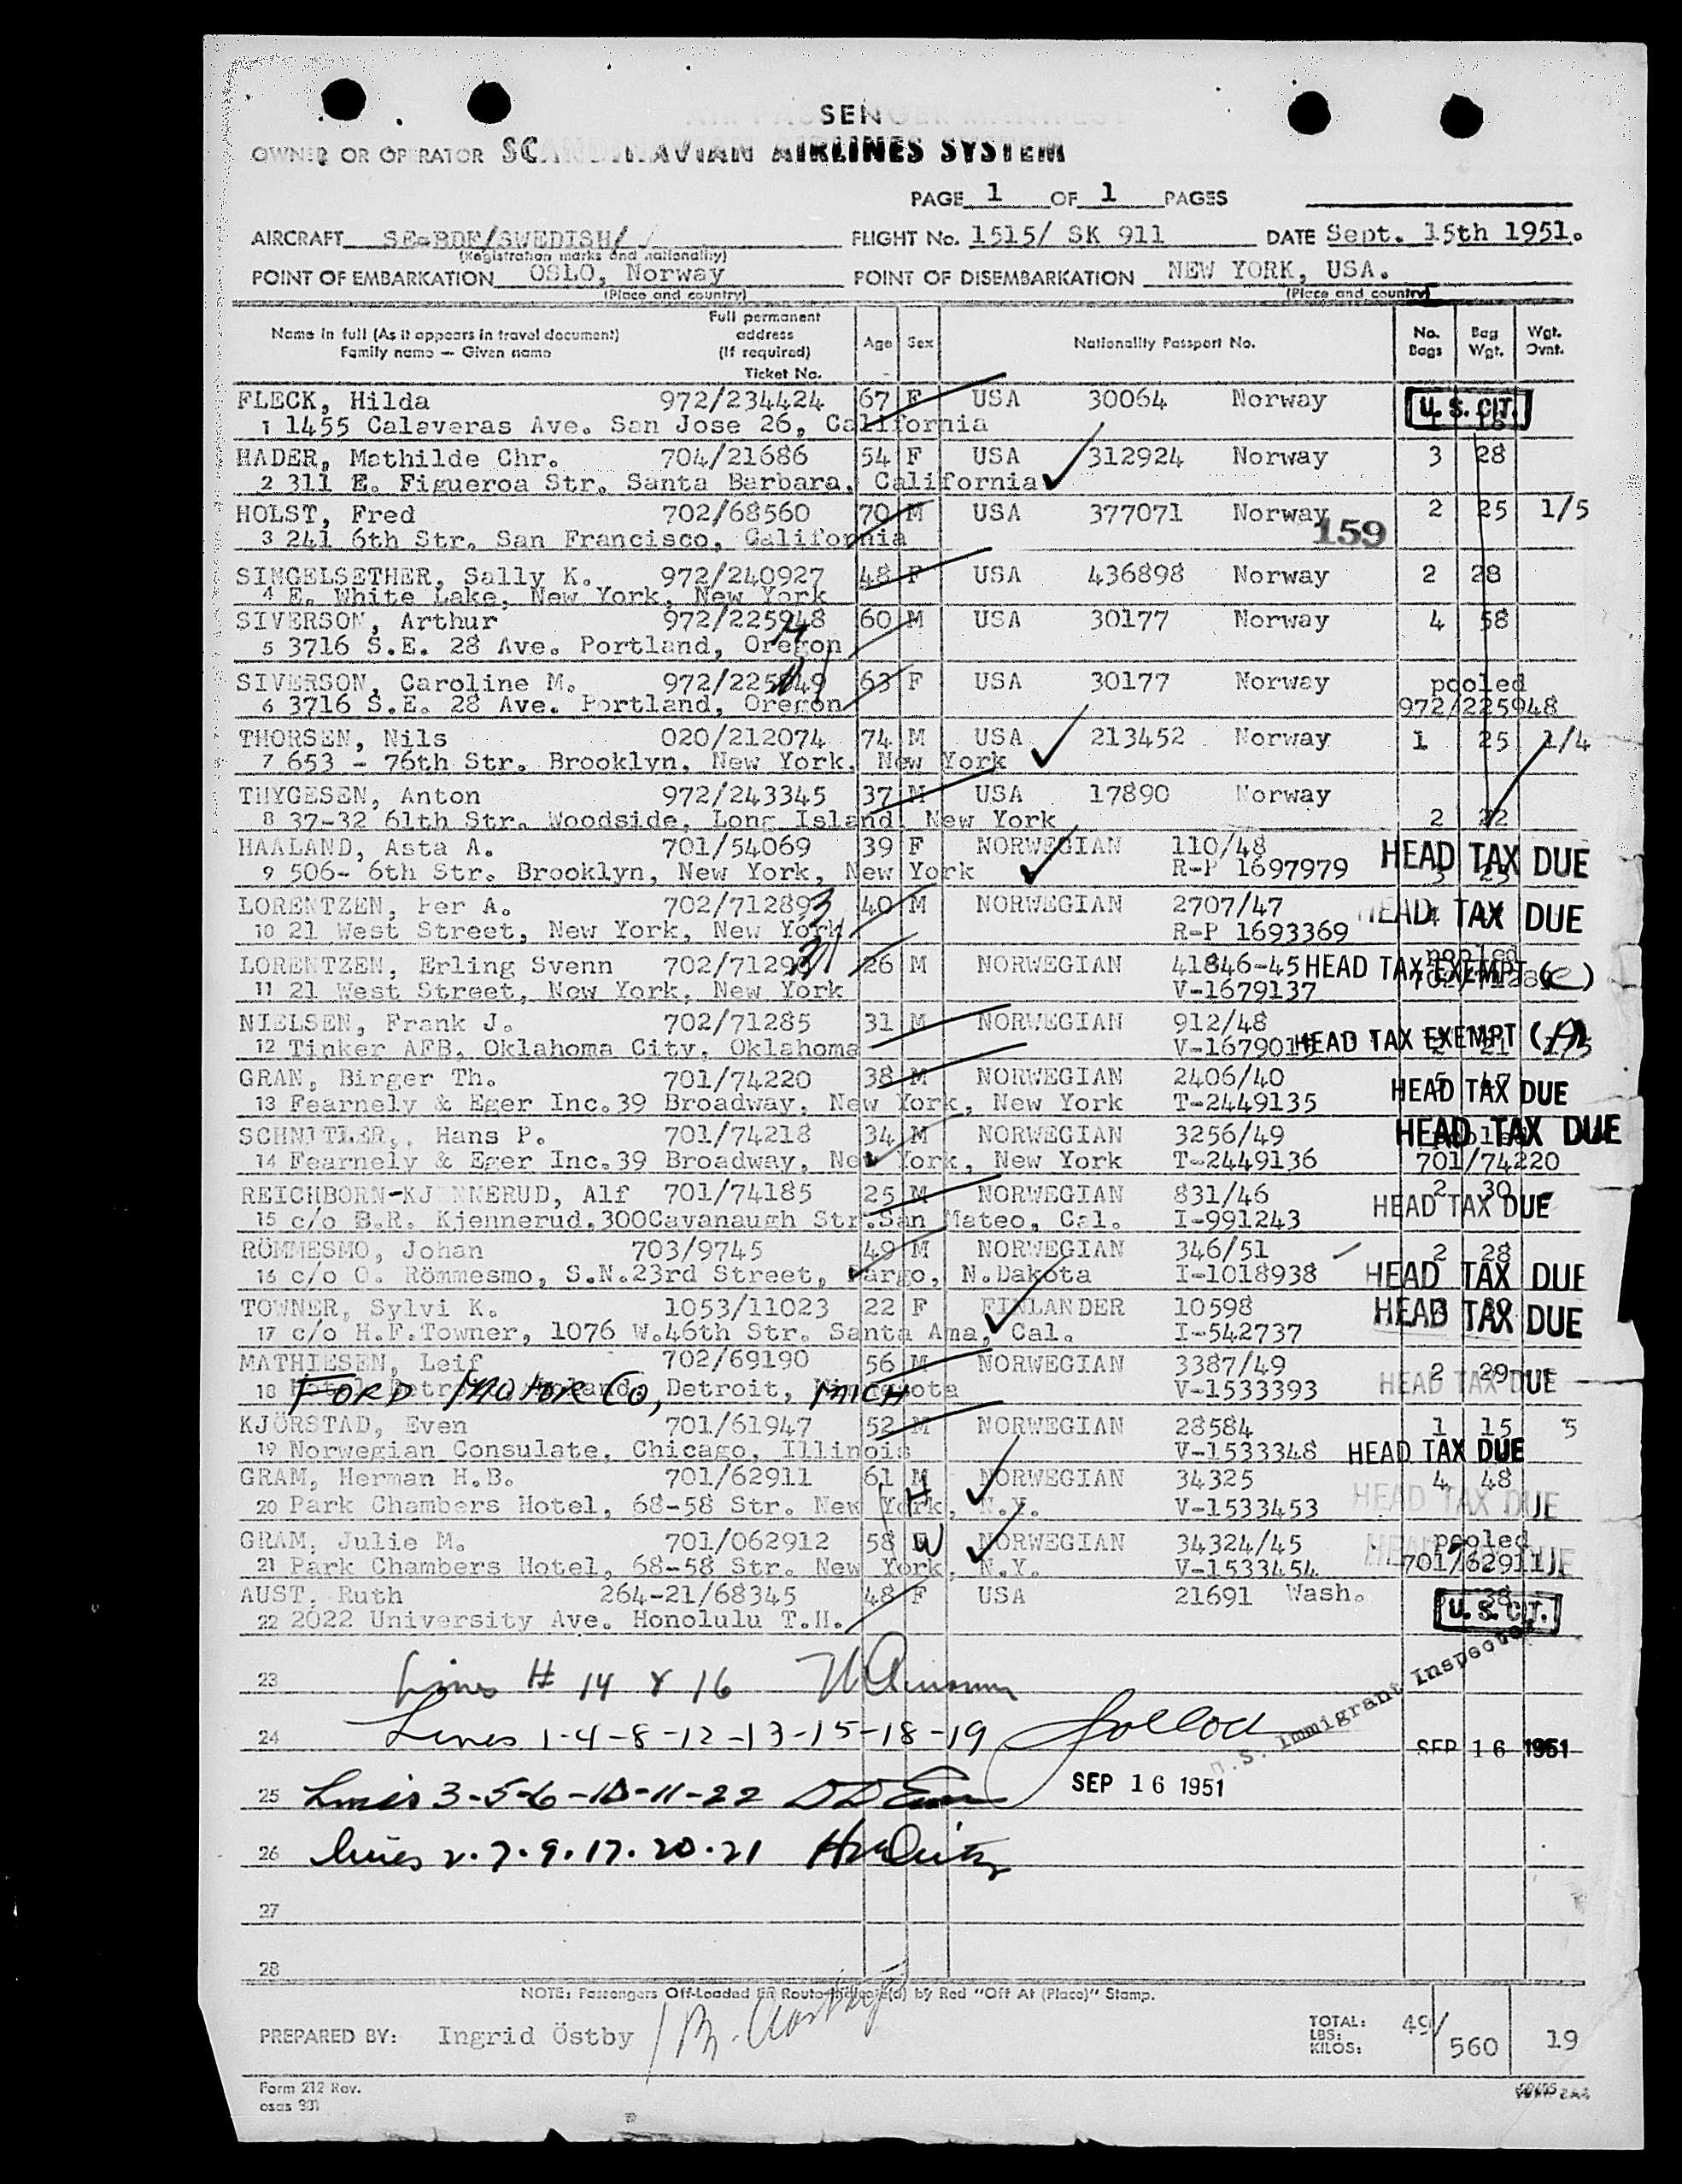 SEN
OWNER OR OPERATOR SCANDINAVIAN AIRLINES SYSTEM
PAGE 1 OF 1 PAGES
AIRCRAFT SE-BDF/SWEDISH/ FLIGHT No. 1515/ SK 911 DATE Sept. 15th 1951.
(Registration marks and nationality)
POINT OF EMBARKATION OSLO, Norway POINT OF DISEMBARKATION NEW YORK, USA.
(Place and country) (Place and country)
Name in full (As it appears in travel document) Family name — Given name Full permanent address (If required) Ticket No. Age Sex Nationality Passport No. No. Bags Bag Wgt. Wgt. Ovnt.
FLECK, Hilda 972/234424 67 F USA 30064 Norway U. S. CIT.
1 1455 Calaveras Ave. San Jose 26, California
HADER, Mathilde Chr. 704/21686 54 F USA 312924 Norway 3 28
2 311 E. Figueroa Str. Santa Barbara, California
HOLST, Fred 702/68560 70 M USA 377071 Norway 2 25 1/5
3 241 6th Str. San Francisco, California 159
SINGELSETHER, Sally K. 972/240927 48 F USA 436898 Norway 2 28
4 E. White Lake, New York, New York
SIVERSON, Arthur 972/225948 60 M USA 30177 Norway 4 58
5 3716 S.E. 28 Ave. Portland, Oregon
SIVERSON, Caroline M. 972/225949 63 F USA 30177 Norway pooled
6 3716 S.E. 28 Ave. Portland, Oregon 972/225948
THORSEN, Nils 020/212074 74 M USA 213452 Norway 1 25 1/4
7 653 - 76th Str. Brooklyn, New York, New York
THYGESEN, Anton 972/243345 37 M USA 17890 Norway
8 37-32 61th Str. Woodside, Long Island, New York 2 22
HAALAND, Asta A. 701/54069 39 F NORWEGIAN 110/48 HEAD TAX DUE
9 506- 6th Str. Brooklyn, New York, New York R-P 1697979 3 23
LORENTZEN, Per A. 702/712893 40 M NORWEGIAN 2707/47 HEAD TAX DUE
10 21 West Street, New York, New York R-P 1693369
LORENTZEN, Erling Svenn 702/7129 26 M NORWEGIAN 41846-45 HEAD TAX EXEMPT (e)
11 21 West Street, New York, New York V-1679137
NIELSEN, Frank J. 702/71285 31 M NORWEGIAN 912/48
12 Tinker AFB, Oklahoma City, Oklahoma V-167901 HEAD TAX EXEMPT
GRAN, Birger Th. 701/74220 38 M NORWEGIAN 2406/40 HEAD TAX DUE
13 Fearnely & Eger Inc.39 Broadway, New York, New York T-2449135
SCHNITLER,, Hans P. 701/74218 34 M NORWEGIAN 3256/49 HEAD TAX DUE
14 Fearnely & Eger Inc.39 Broadway, New York, New York T-2449136 701/74220
REICHBORN-KJENNERUD, Alf 701/74185 25 M NORWEGIAN 831/46 2 30
15 c/o B.R. Kjennerud.300Cavanaugh Str.San Mateo, Cal. I-991243 HEAD TAX DUE
RÖMMESMO, Johan 703/9745 49 M NORWEGIAN 346/51 2 28
16 c/o O. Römmesmo, S.N.23rd Street, Fargo, N.Dakota I-1018938 HEAD TAX DUE
TOWNER, Sylvi K. 1053/11023 22 F FINLANDER 10598 HEAD TAX DUE
17 c/o H.F.Towner, 1076 W.46th Str. Santa Ama, Cal. I-542737
MATHIESEN, Leif 702/69190 56 M NORWEGIAN 3387/49 2 29
18 FORD MOTOR CO, Detroit, MICH V-1533393 HEAD TAX DUE
KJÖRSTAD, Even 701/61947 52 M NORWEGIAN 28584 1 15 5
19 Norwegian Consulate, Chicago, Illinois V-1533348 HEAD TAX DUE
GRAM, Herman H.B. 701/62911 61 M NORWEGIAN 34325 4 48
20 Park Chambers Hotel, 68-58 Str. New York, N.Y. H V-1533453 HEAD TAX DUE
GRAM, Julie M. 701/062912 58 W NORWEGIAN 34324/45 pooled
21 Park Chambers Hotel, 68-58 Str. New York, N.Y. V-1533454 701/62911
AUST, Ruth 264-21/68345 48 F USA 21691 Wash.
22 2022 University Ave. Honolulu T.H. U. S. CIT.
23 Lines # 14 & 16
24 Lines 1-4-8-12-13-15-18-19 U.S. Immigrant Inspector SEP 16 1951
25 Lines 3-5-6-10-11-22 SEP 16 1951
26 lines 2.7.9.17.20.21
27
28
NOTE: Passengers Off-Loaded En Route Indicate(d) by Red "Off At (Place)" Stamp.
PREPARED BY: Ingrid Östby TOTAL: LBS: KILOS: 49/ 560 19
Form 212 Rev.
osas 301